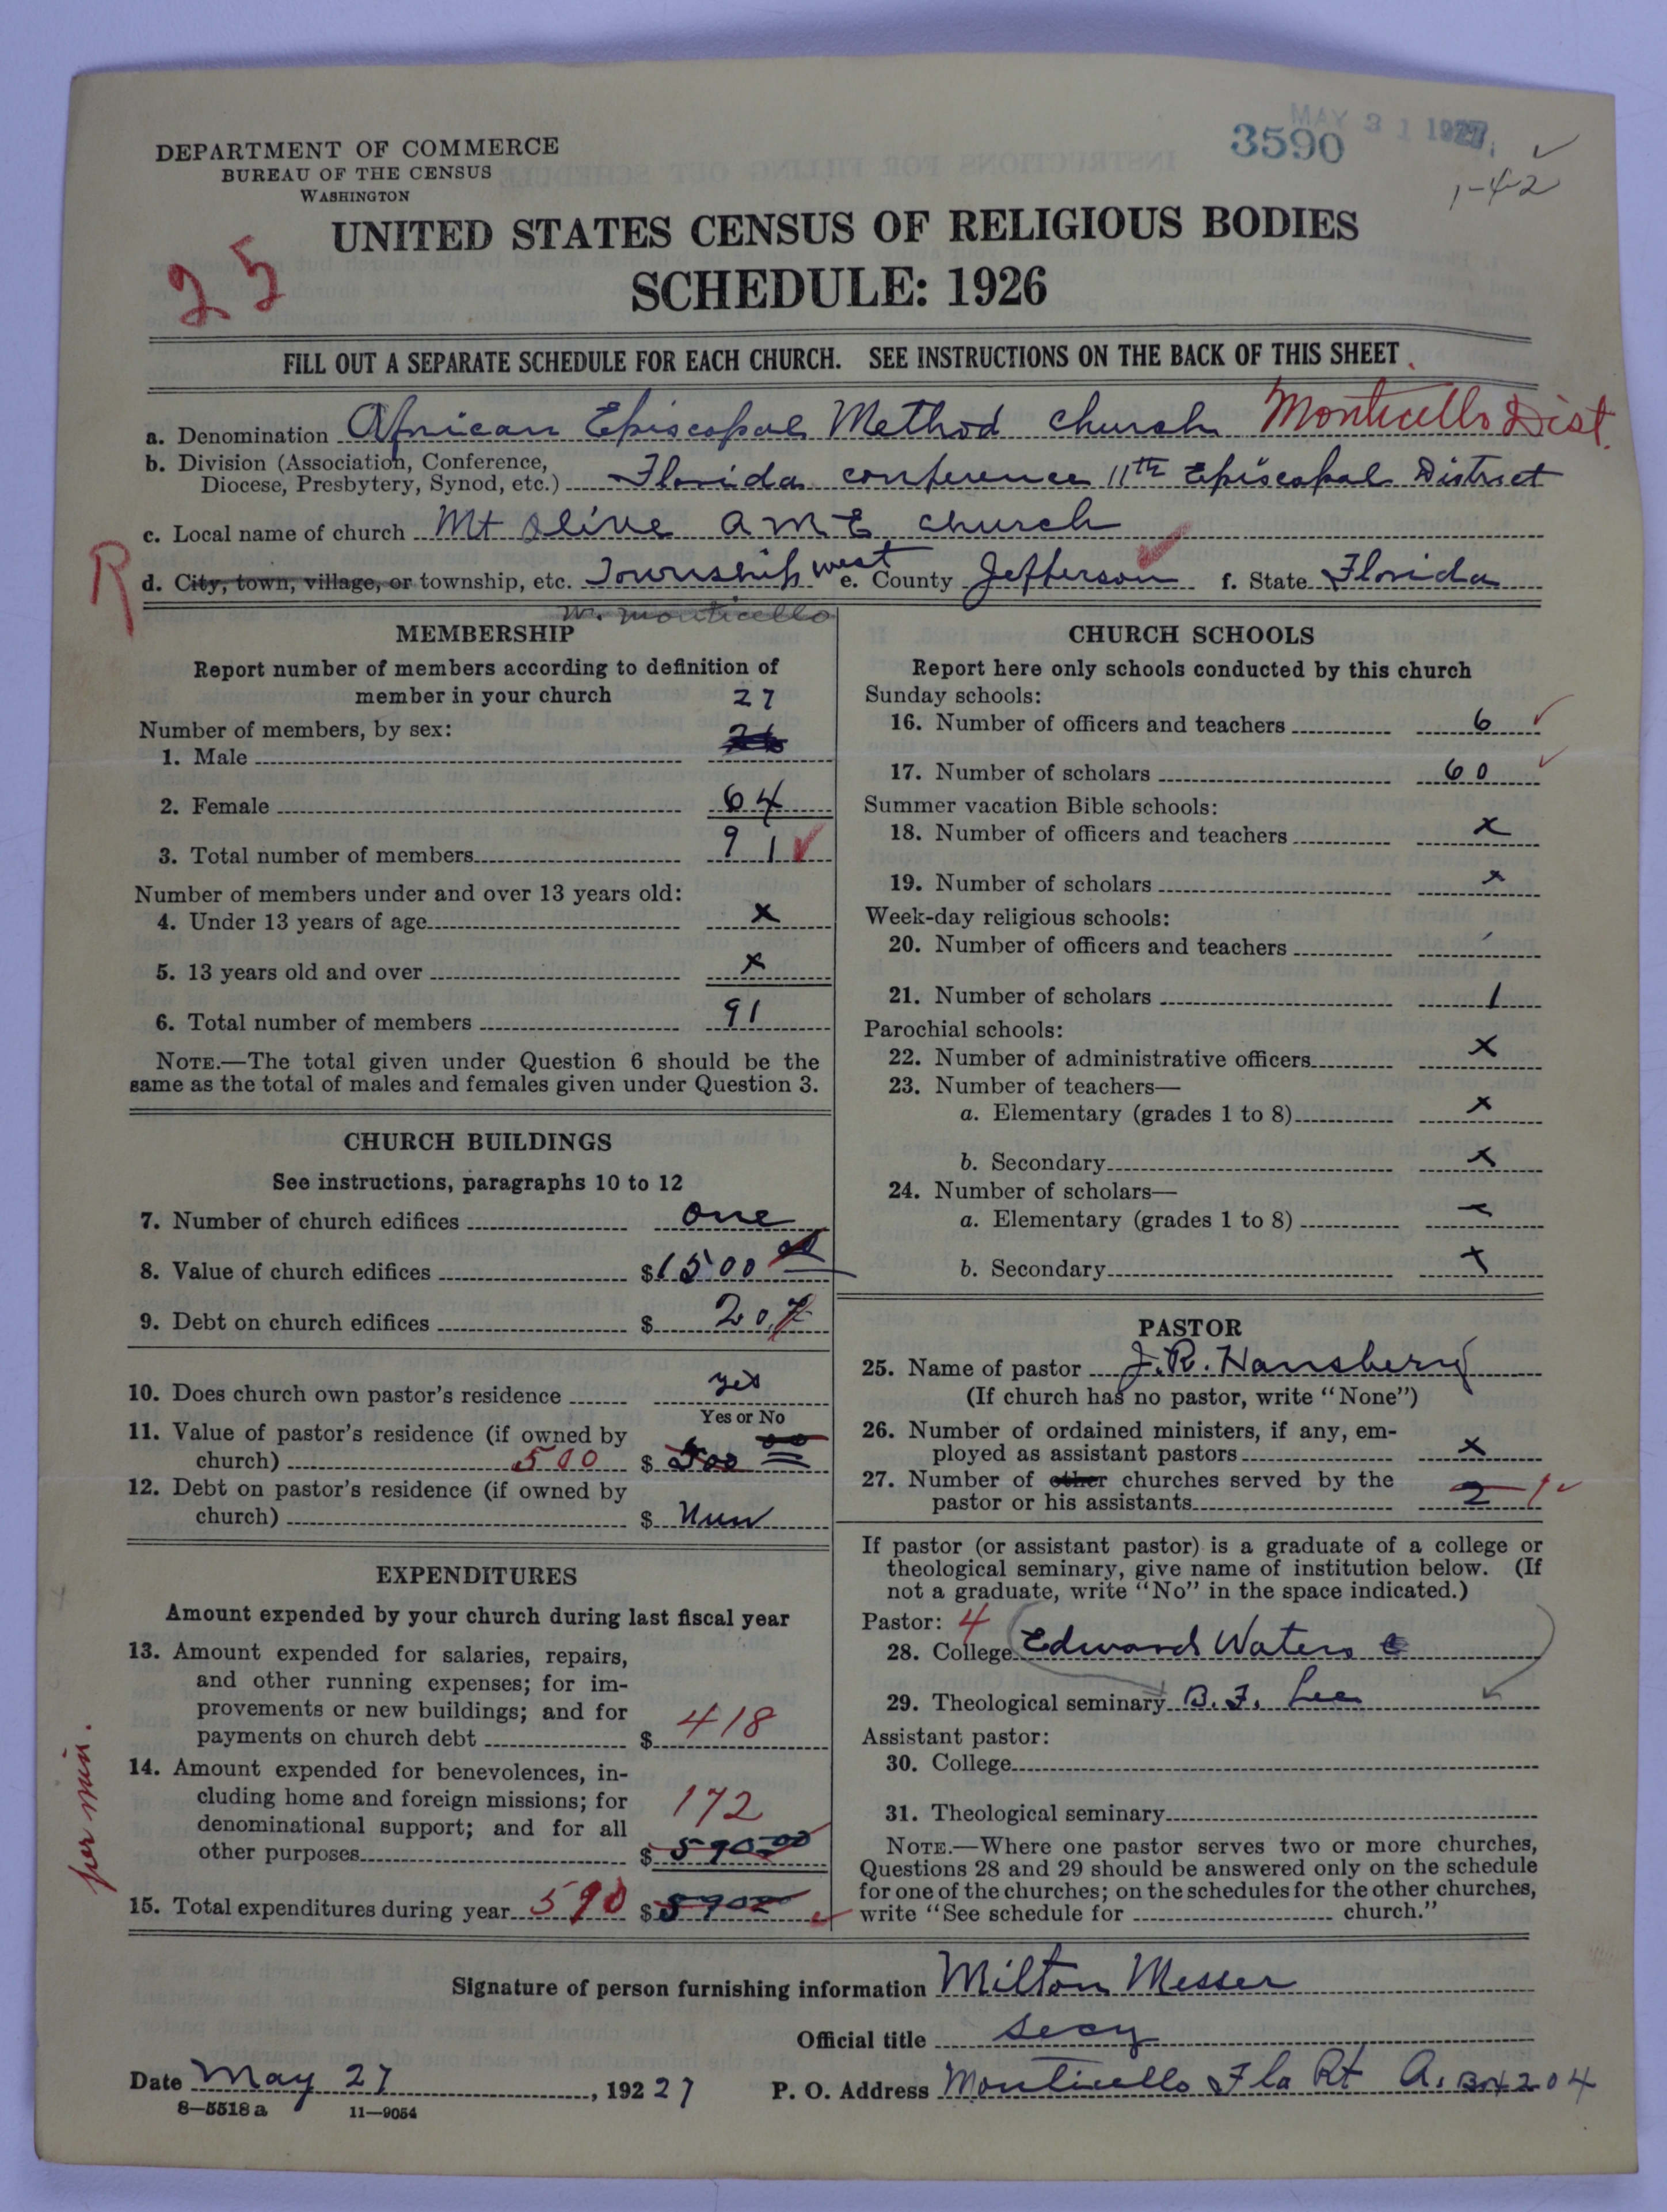 MAY 31 1927
3590
1-4-2
DEPARTMENT OF COMMERCE
BUREAU OF THE CENSUS
WASHINGTON
UNITED STATES CENSUS OF RELIGIOUS BODIES
25
SCHEDULE: 1926
FILL OUT A SEPARATE SCHEDULE FOR EACH CHURCH. SEE INSTRUCTIONS ON THE BACK OF THIS SHEET
a. Denomination African Episcopal Method church Monticello Dist.
b. Division (Association, Conference, Diocese, Presbytery, Synod, etc.) Florida conference 11th Episcopal District
c. Local name of church Mt Olive A M E church
R
d. City, town, village, or township, etc. Township west e. County Jefferson f. State Florida
w. monticello
MEMBERSHIP
Report number of members according to definition of
member in your church
27
Number of members, by sex:
1. Male 26
2. Female 64
3. Total number of members 91
Number of members under and over 13 years old:
4. Under 13 years of age x
5. 13 years old and over x
6. Total number of members 91
NOTE.—The total given under Question 6 should be the
same as the total of males and females given under Question 3.
CHURCH BUILDINGS
See instructions, paragraphs 10 to 12
7. Number of church edifices one
8. Value of church edifices $1500 00
9. Debt on church edifices $ 20.7
10. Does church own pastor's residence yes
Yes or No
11. Value of pastor's residence (if owned by
church) 500 $ 500 00
12. Debt on pastor's residence (if owned by
church) $ Nun
EXPENDITURES
Amount expended by your church during last fiscal year
13. Amount expended for salaries, repairs,
and other running expenses; for im-
provements or new buildings; and for
payments on church debt $ 418
14. Amount expended for benevolences, in-
cluding home and foreign missions; for
denominational support; and for all
other purposes 172 $ 590 00
15. Total expenditures during year 590 $ 590
per min.
CHURCH SCHOOLS
Report here only schools conducted by this church
Sunday schools:
16. Number of officers and teachers 6
17. Number of scholars 60
Summer vacation Bible schools:
18. Number of officers and teachers x
19. Number of scholars x
Week-day religious schools:
20. Number of officers and teachers
21. Number of scholars 1
Parochial schools:
22. Number of administrative officers x
23. Number of teachers—
a. Elementary (grades 1 to 8) x
b. Secondary x
24. Number of scholars—
a. Elementary (grades 1 to 8)
b. Secondary x
PASTOR
25. Name of pastor J. R. Hansberry
(If church has no pastor, write "None")
26. Number of ordained ministers, if any, em-
ployed as assistant pastors x
27. Number of other churches served by the
pastor or his assistants 2 1
If pastor (or assistant pastor) is a graduate of a college or
theological seminary, give name of institution below. (If
not a graduate, write "No" in the space indicated.)
Pastor: 4
28. College Edward Waters C
29. Theological seminary B. F. Lee
Assistant pastor:
30. College
31. Theological seminary
NOTE.—Where one pastor serves two or more churches,
Questions 28 and 29 should be answered only on the schedule
for one of the churches; on the schedules for the other churches,
write "See schedule for church."
Signature of person furnishing information Milton Messer
Official title secy
Date May 27, 192 27 P. O. Address Monticello Fla Rt A. Bx 204
8—5518 a 11—9054